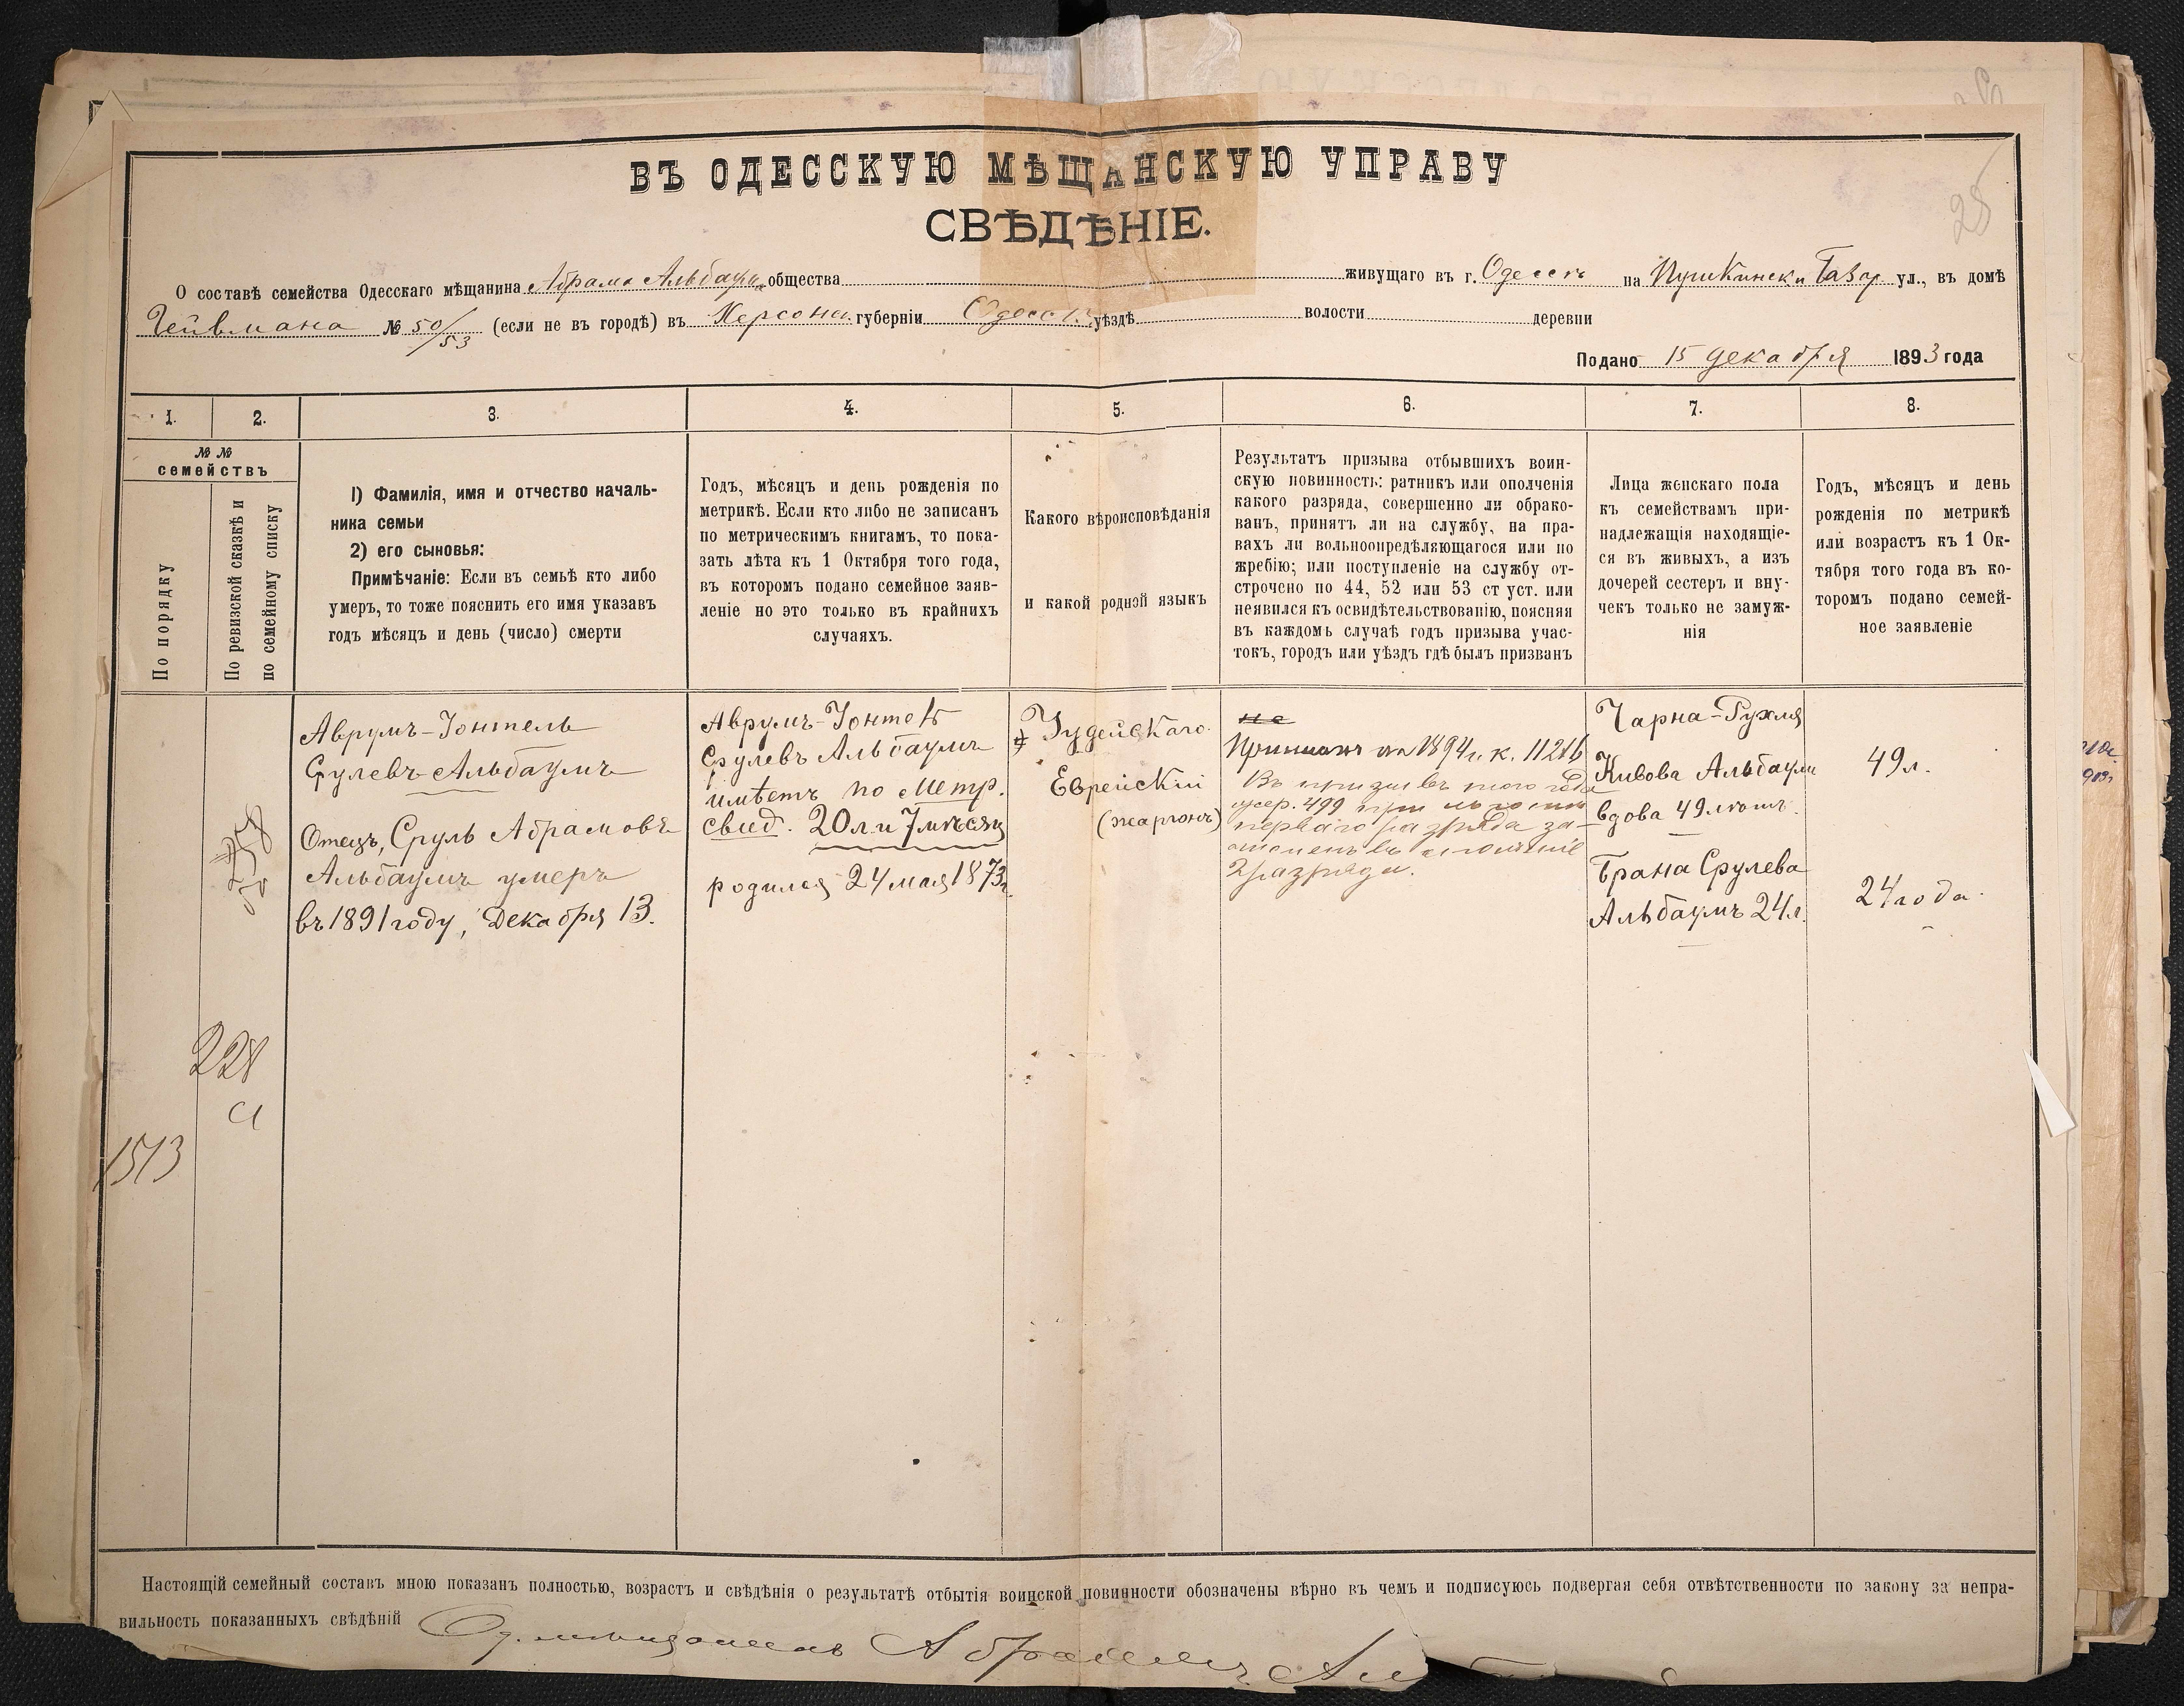 25
ВЪ ОДЕССКУЮ МѢЩАНСКУЮ УПРАВУ
СВѢДѢНІЕ.
О составѣ семейства Одесскаго мѣщанина Абрама Альбаумъ общества живущаго въ г. Одессѣ на Пушкинск и Базар ул., въ домѣ
№ 50/53 (если не въ городѣ) въ Херсонс. губерніи Одесск. уѣздѣ волости деревни
Подано 15 декабря 1893 года
1. 2. 3. 4. 5. 6. 7. 8.
№ №
семействъ
По порядку
По ревизской сказкѣ и
по семейному списку
1) Фамилія, имя и отчество началь-
ника семьи
2) его сыновья:
Примѣчаніе: Если въ семьѣ кто либо
умеръ, то тоже пояснить его имя указавъ
годъ мѣсяцъ и день (число) смерти
Годъ, мѣсяцъ и день рожденія по
метрикѣ. Если кто либо не записанъ
по метрическимъ книгамъ, то пока-
зать лѣта къ 1 Октября того года,
въ которомъ подано семейное заяв-
леніе но это только въ крайнихъ
случаяхъ.
Какого вѣроисповѣданія
и какой родной языкъ
Результатъ призыва отбывшихъ воин-
скую повинность: ратникъ или ополченія
какого разряда, совершенно ли обрако-
ванъ, принятъ ли на службу, на пра-
вахъ ли вольноопредѣляющагося или по
жребію; или поступленіе на службу от-
строчено по 44, 52 или 53 ст уст. или
неявился къ освидѣтельствованію, поясняя
въ каждомъ случаѣ годъ призыва учас-
токъ, городъ или уѣздъ гдѣ былъ призванъ
Лица женскаго пола
къ семействамъ при-
надлежащія находящіе-
ся въ живыхъ, а изъ
дочерей сестеръ и вну-
чекъ только не замуж-
нія
Годъ, мѣсяцъ и день
рожденія по метрикѣ
или возрастъ къ 1 Ок-
тября того года въ ко-
торомъ подано семей-
ное заявленіе
Аврумъ-Іонтель
Срулевъ Альбаумъ
Отецъ, Сруль Абрамовъ
Альбаумъ умеръ
въ 1891 году, Декабря 13.
Аврумъ-Іонтель
Срулевъ Альбаумъ
имѣетъ по Метр.
свид. 20 л. и 7 мѣсяц
родился 24 мая 1873 г.
Іудейскаго.
Еврейскій
(жаргонъ)
не
1894 г. к. 11216
Въ призывъ того года
жер. 499 при льготѣ
перваго разряда за-
численъ въ ополченіе
2 разряда.
Чарна-Рухля
Кивова Альбаумъ
вдова 49 лѣтъ.
Брана Срулева
Альбаумъ 24 л.
49 л.
24 года.
228
а
1513
Настоящій семейный составъ мною показанъ полностью, возрастъ и свѣдѣнія о результатѣ отбытія воинской повинности обозначены вѣрно въ чемъ и подписуюсь подвергая себя отвѣтственности по закону за непра-
вильность показанныхъ свѣдѣній
Од. мѣщанинъ Абрамъ